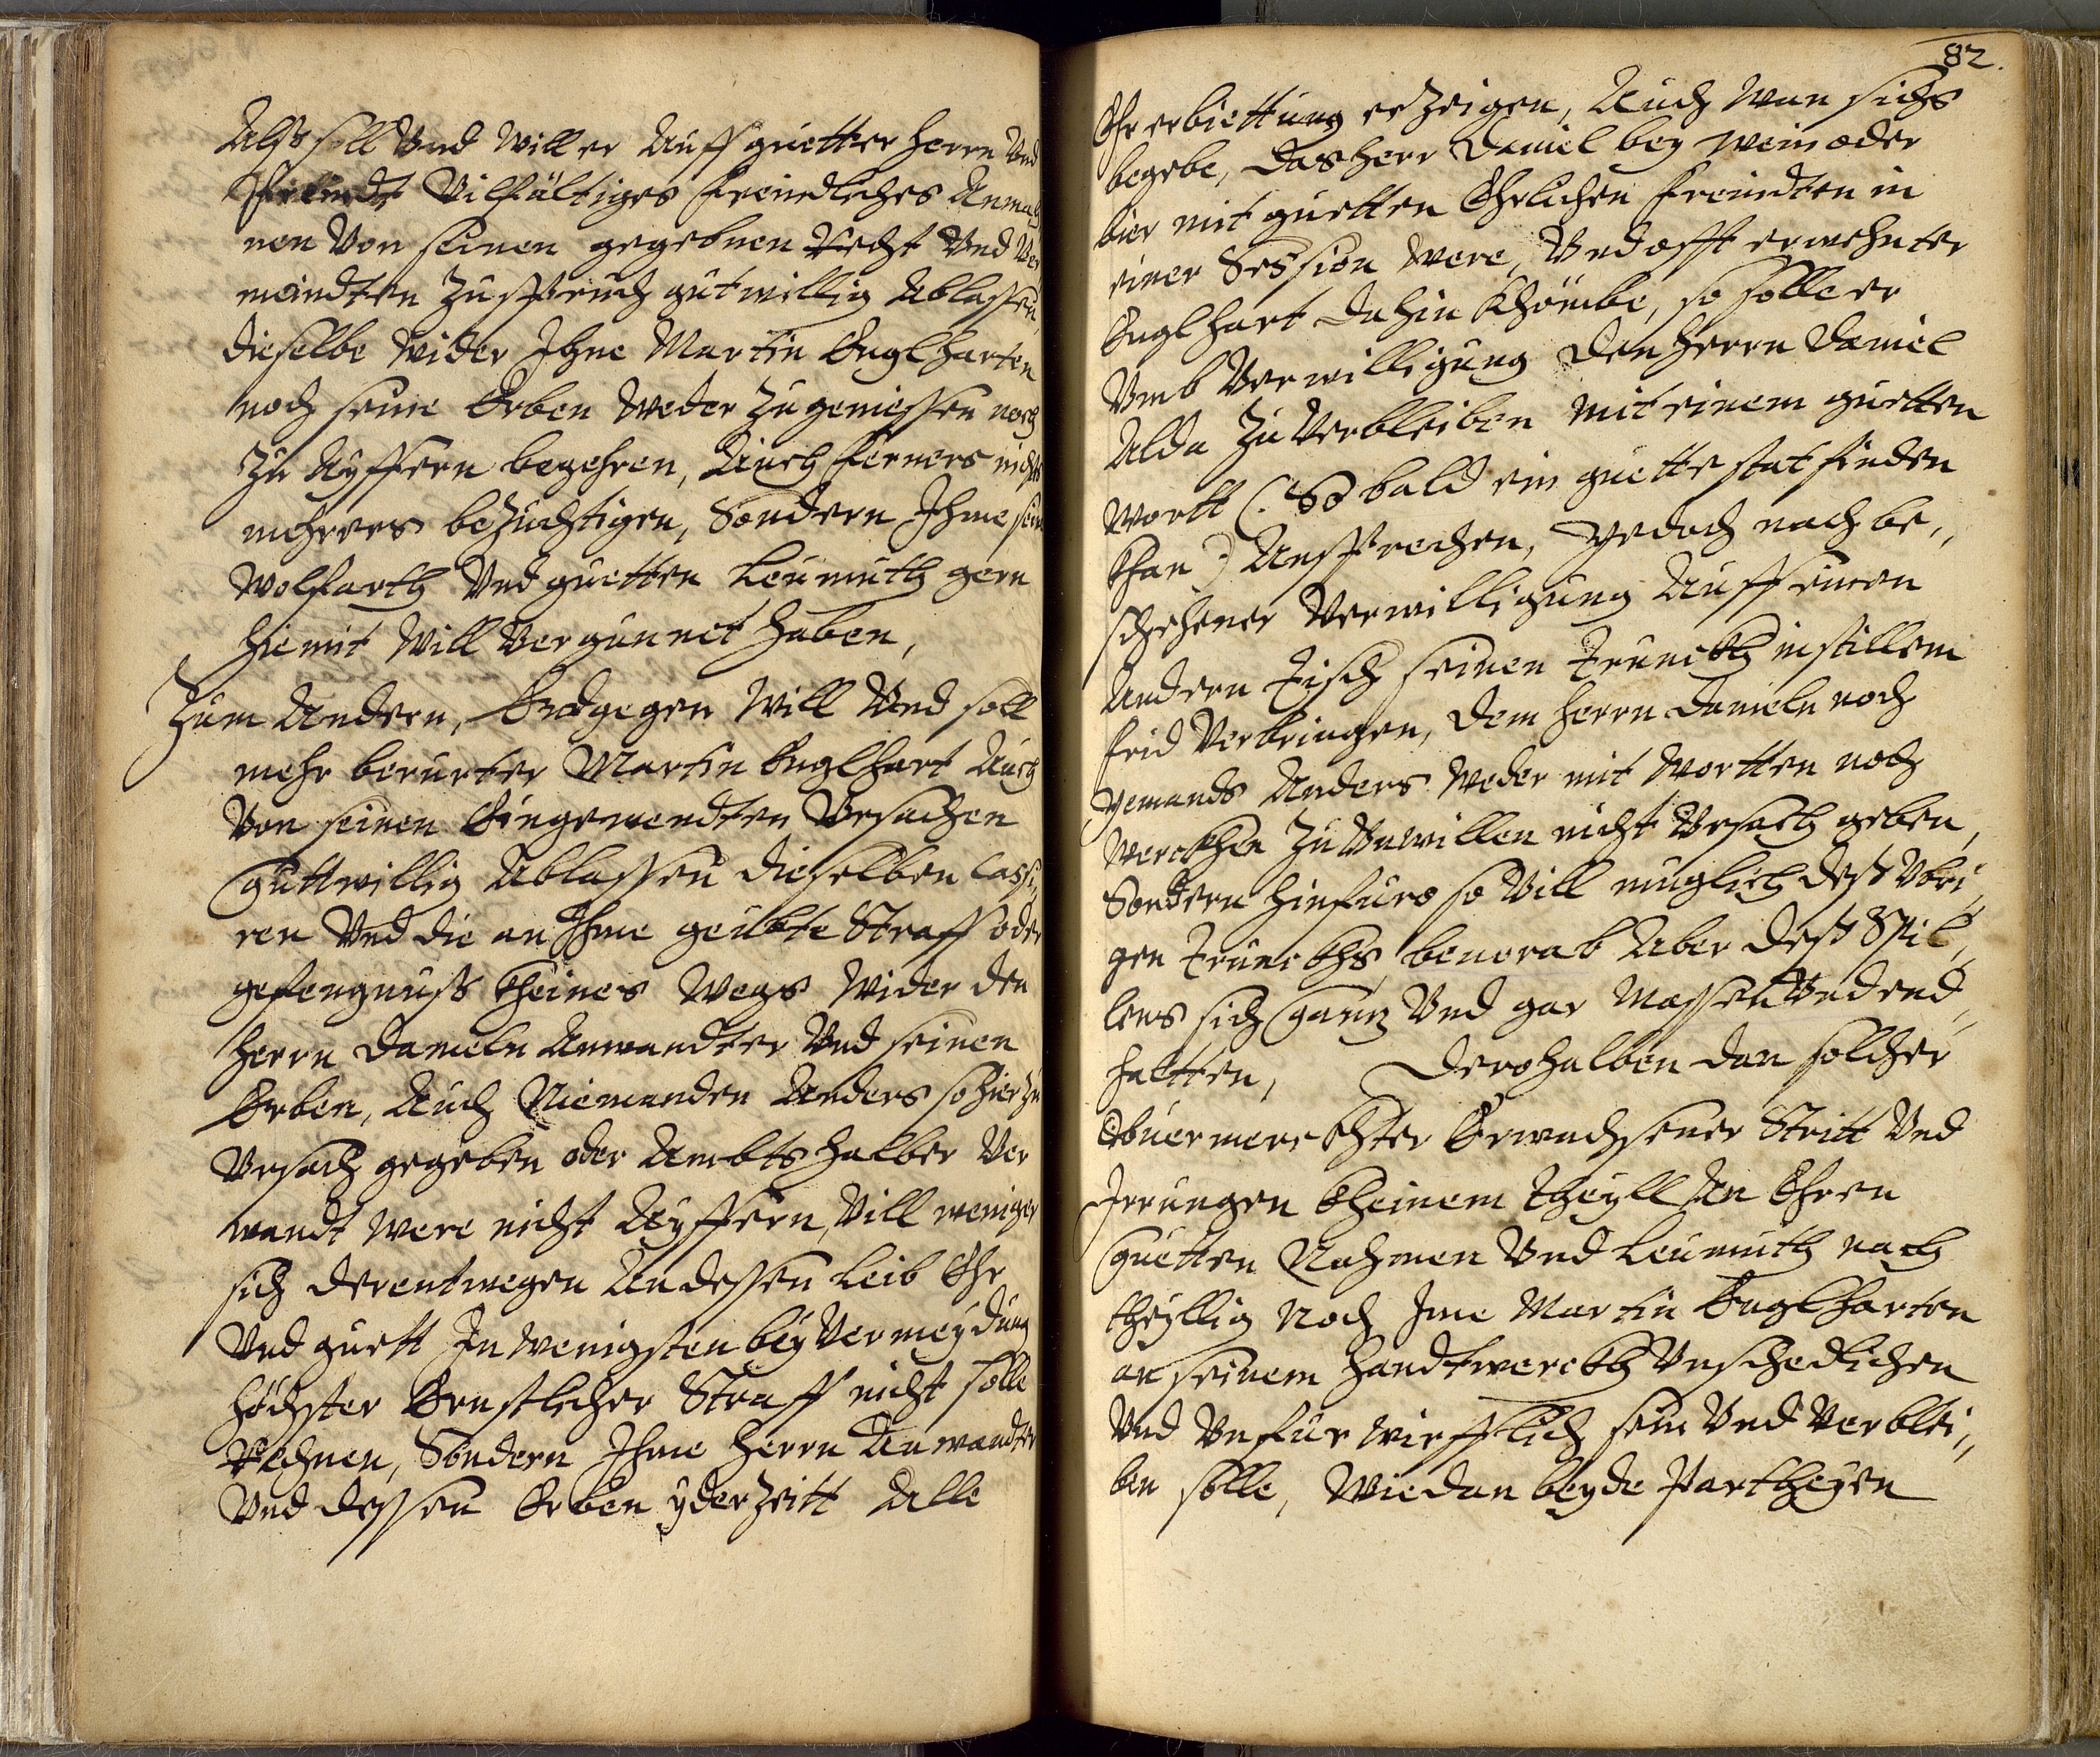 Alß soll Vnd will er Auff guetter herrn Vnd
Freindt Vilfältiges freindtliches Anmah
nen Von seinen gegebnen Recht Vnd Ver
meindten Zuspruch gutwillig Ablassen,
dieselbe wider Ihne Martin Englharten
noch seine Erben weder zu geniessen noch
zu Äyffern begehren, Auch ferners nichts
mehrers bezüchtigen, Sondern Ihme sein
Wolfarth Vnd guetten Leumuth gern
hiemit will Vergunnet haben,
Zum Andern, Endgegen will Vnd soll
mehr berurter Martin Englhart Auch
Von seinen Eingewendten Vrsachen
Guttwillig Ablassen dieselben Cassi,,
ren Vnd die an Ihme geübte Straff oder
gefengnuß Kheines Wegs Wider den
Herrn Danieln Anwandter Vnd seinen
Erben, Auch Niemanden Anders so hierzu
Vrsach gegeben oder Ambts halber Ver
wandt were nicht Äyffern, Vill weniger
sich derentwegen An dessen Leib Ehr
Vnd guett In wenigsten bey Vermeydung
höchster Ernstlicher Straff nicht solle
Rechnen, Sondern Ihme Herrn Anwandter
Vnd dessen Erben yderzeitt Alle
82.
Ehrerbiettung erzeigen, Auch wan sichs
begebe, das herr Daniel bey wein oder
bier mit guetten Ehrlichen freundten in
einer Session were, Vnd offt erwehnter
Englhart dahin Khömbe, so solle er
Vmb Verwilligung den herrn Daniel
Alda zu Verbleiben mit einem guetten
wortt (: So bald ein guette stat finden
Khan :) Ansprechen, Yedoch nach be,,
schehener Verwilligung Auff einen
Andern Tisch seinen Trunckh in stillem
frid Verbringen, dem herrn Danieln noch
yemands Anders weder mit wortten noch
werckhen zu Vnwillen nicht Vrsach geben,
Sondern hinfuro so Vill muglich deß Vbri,,
gen Trunckhs, beuorab Aber deß Spil,,
lens sich Ganz Vnd gar Massen Vnd end,,
haltten, Derohalben dan solcher
Obuermerckhter Erwachsener Stritt Vnd
Irrungen Kheinem Theyll An Ehren
Guetten Nahmen Vnd Leumuth nach
theyllig Noch Ime Martin Englharten
an seinem Handtwerckh Vnschedlichen
Vnd Vnfurwirfflich sein Vnd Verblei,,
ben solle, Wie dan beyde Partheyen